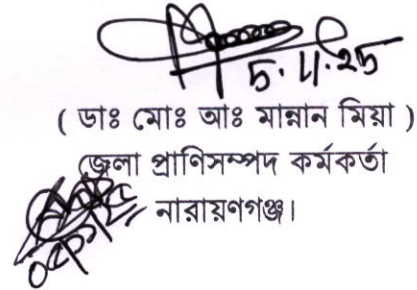 5.11.25
( ডাঃ মোঃ আঃ মান্নান মিয়া )
জেলা প্রাণিসম্পদ কর্মকর্তা
নারায়ণগঞ্জ।